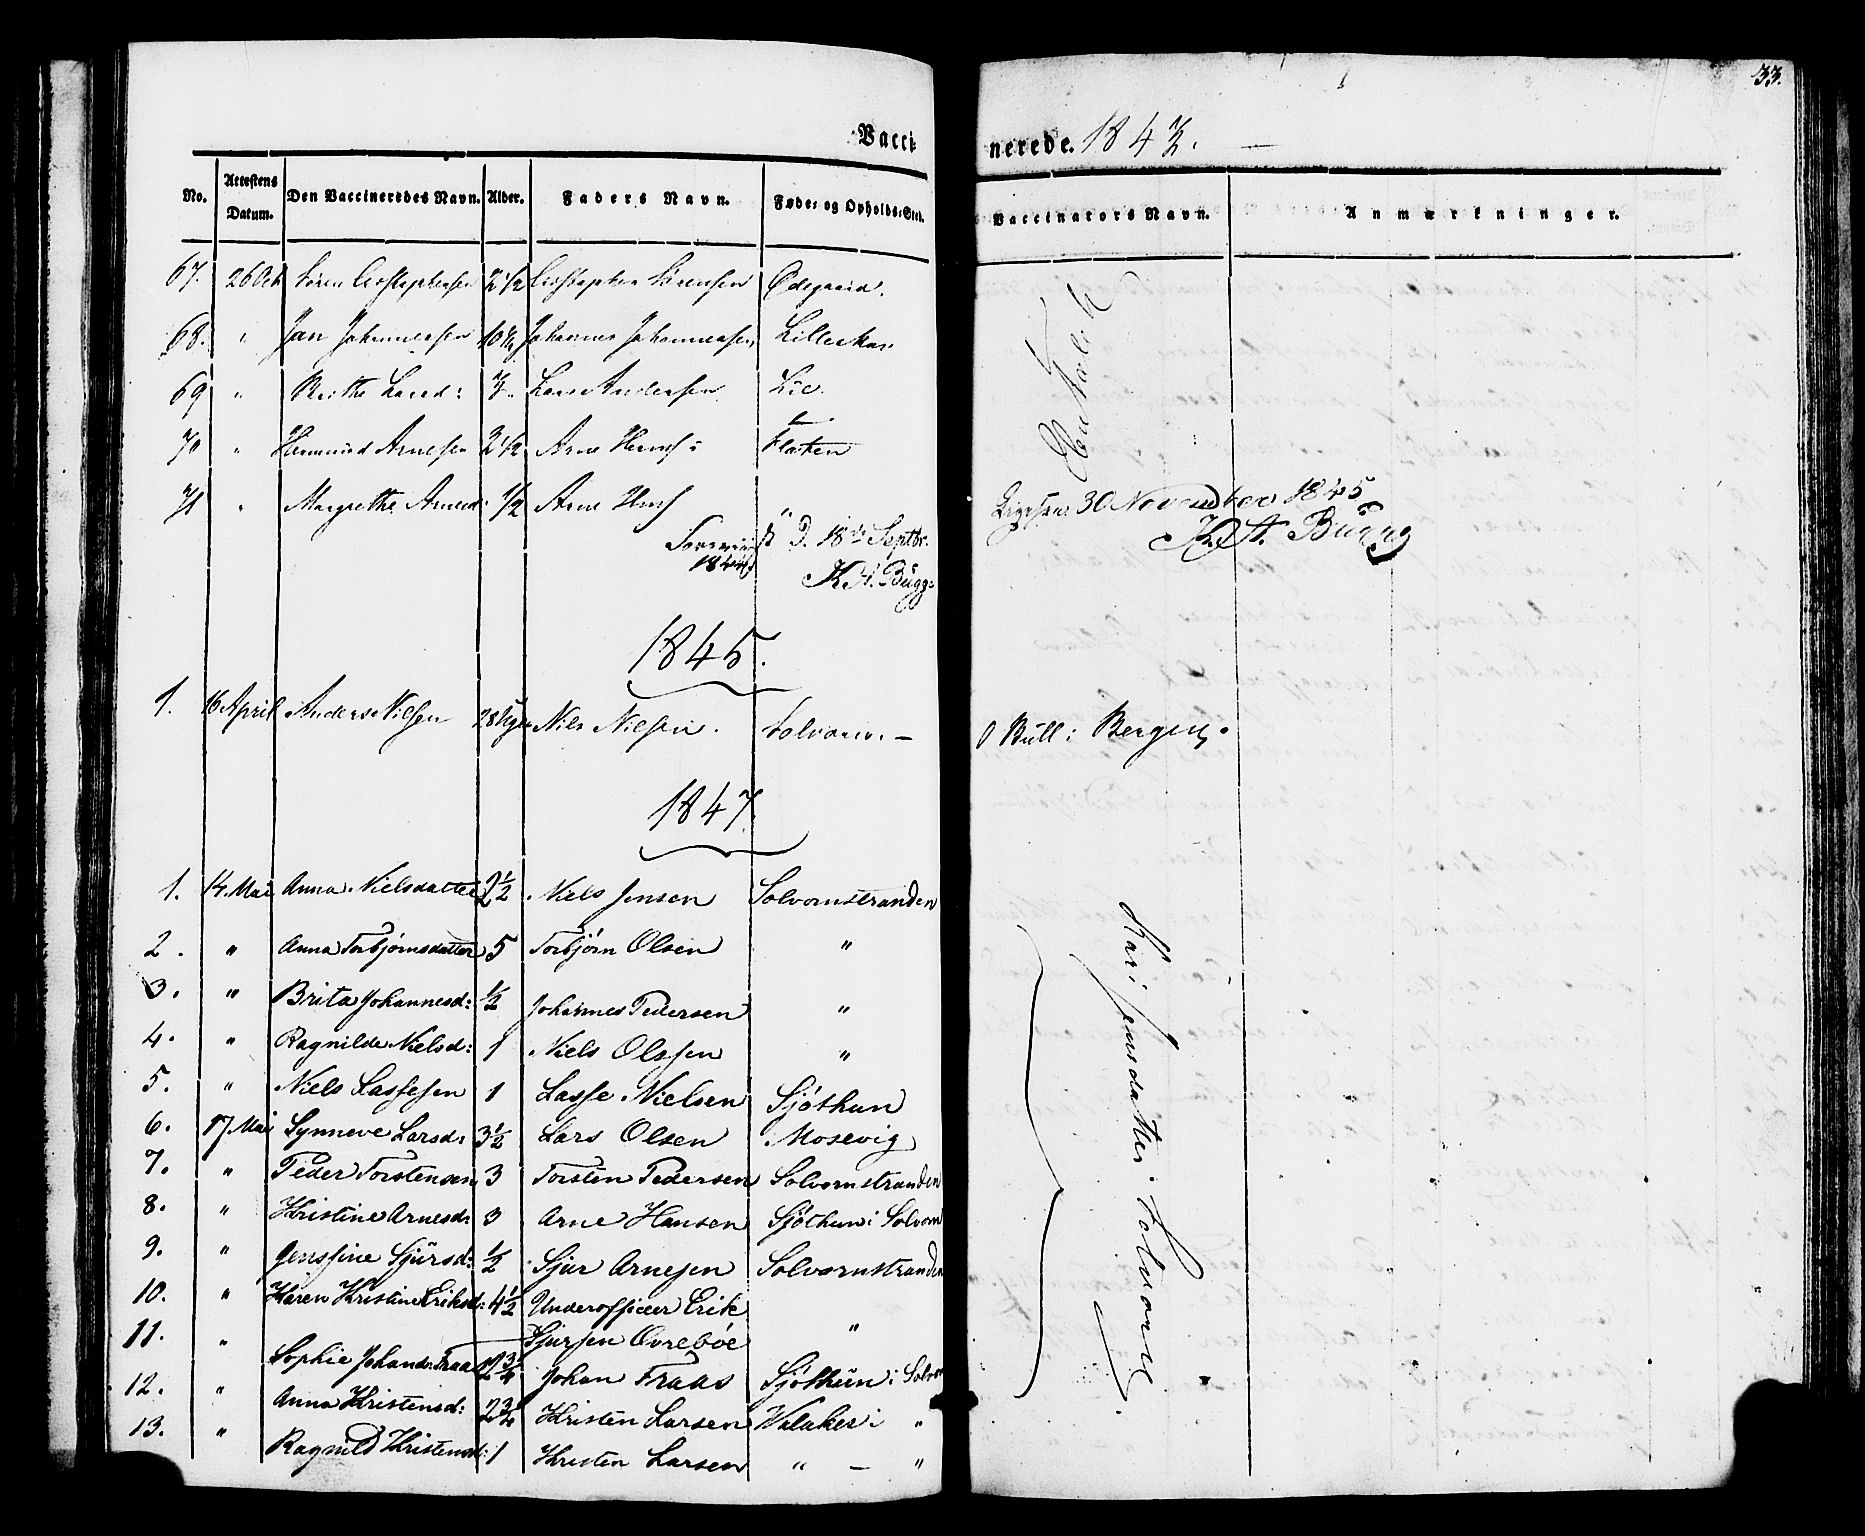 33.
Vacci-nerede. 1843.
No. Attestens Datum. Den Vaccineredes Navn. Alder. Faders Navn. Føde- og Opholds-Sted. Vaccinators Navn. Anmærkninger.
67. 26 Oct Sören Christophersen 2 1/2 Christopher Sörensen Ødegaard.
68. " Jan Johannessen 10 1/4 Johannes Johannessen Lilleskar
69 " Brithe Larsd: 3. Lars Andersen Lie.
70 " Hermund Arnesen 2 1/2 Arne Herms: Flaten
71 " Margrethe Arnesd: 1/2 Arne Herms "
Foreviist D. 18de Septbr. 1844
K A. Bugge
30 November 1845
K. A. Bugge
1845.
1. 16 April Anders Nilsen 28 Uger Nils Nilsen. Solvorn. — O Bull i Bergen.
1847.
1. 14. Mai Anna Nielsdatter 2 1/2 Niels Jensen Solvornstranden
2. " Anna Torbjørnsdatter 5 Torbjørn Olsen "
3. " Brita Johannesd: 1/2 Johannes Pedersen "
4. " Ragnilde Nielsd: 1 Niels Olssen "
5. " Niels Lassesen 1 Lasse Nielsen Sjøthun
6. 17 Mai Synneve Larsd: 3 1/2 Lars Olsen Mosevig
7. " Peder Torstensen 3 Torsten Pedersen Solvornstranden
8. " Kristine Arnesd: 3 Arne Hansen Sjøthun i Solvorn
9. " Jenssine Sjursd: 1/2 Sjur Arnesen Solvornstranden
10. " Karen Kristine Eriksd: 4 1/2 Underofficier Erik
Sjursen Ovrebøe "
11. " Sophie Johansd: Fraas 2 3/4 Johan Fraas Sjøthun i Solvorn
12. " Anna Kristensd: 2 3/4 Kristen Larsen Walaker i "
13. " Ragnild Kristensd: 1 Kristen Larsen " — "
Kari Jensdatter Solvorn.